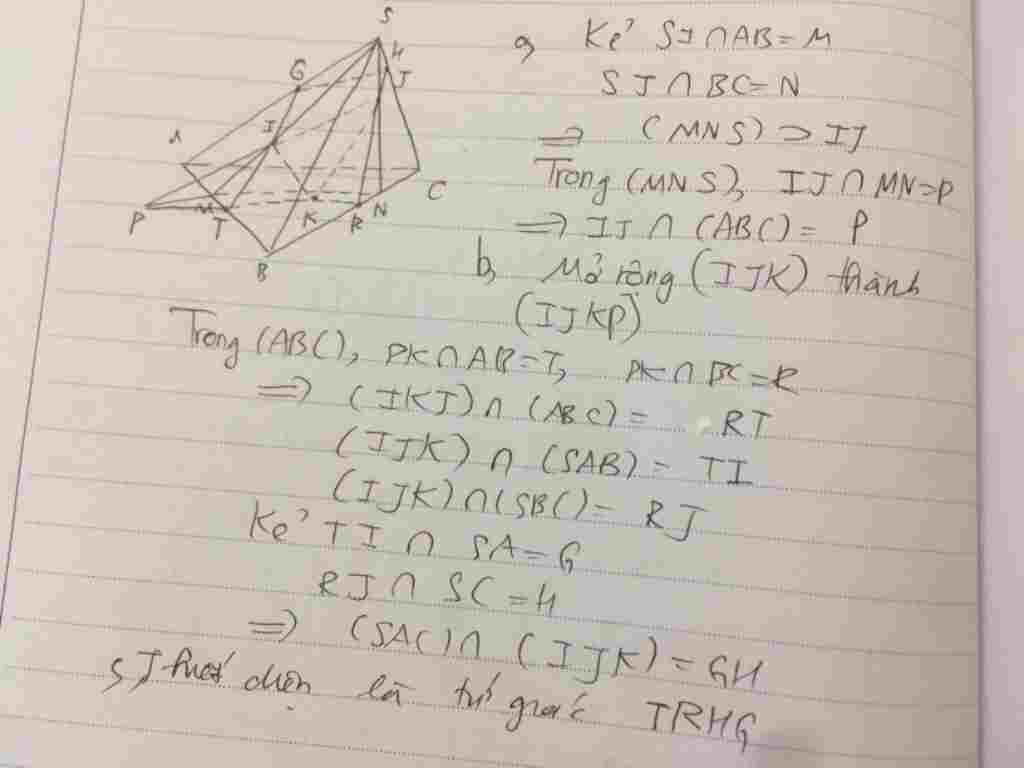 S
H
G
J
I
A
C
P
M
T
K
R
N
B
a, Kẻ SI ∩ AB = M
SJ ∩ BC = N
⇒ (MNS) ⊃ IJ
Trong (MNS), IJ ∩ MN = P
⇒ IJ ∩ (ABC) = P
b, Mở rộng (IJK) thành
(IJKP)
Trong (ABC), PK ∩ AB = T, PK ∩ BC = R
⇒ (IKJ) ∩ (ABC) = RT
(IJK) ∩ (SAB) = TI
(IJK) ∩ (SBC) = RJ
Kẻ TI ∩ SA = G
RJ ∩ SC = H
⇒ (SAC) ∩ (IJK) = GH
diện là tứ giác TRHG